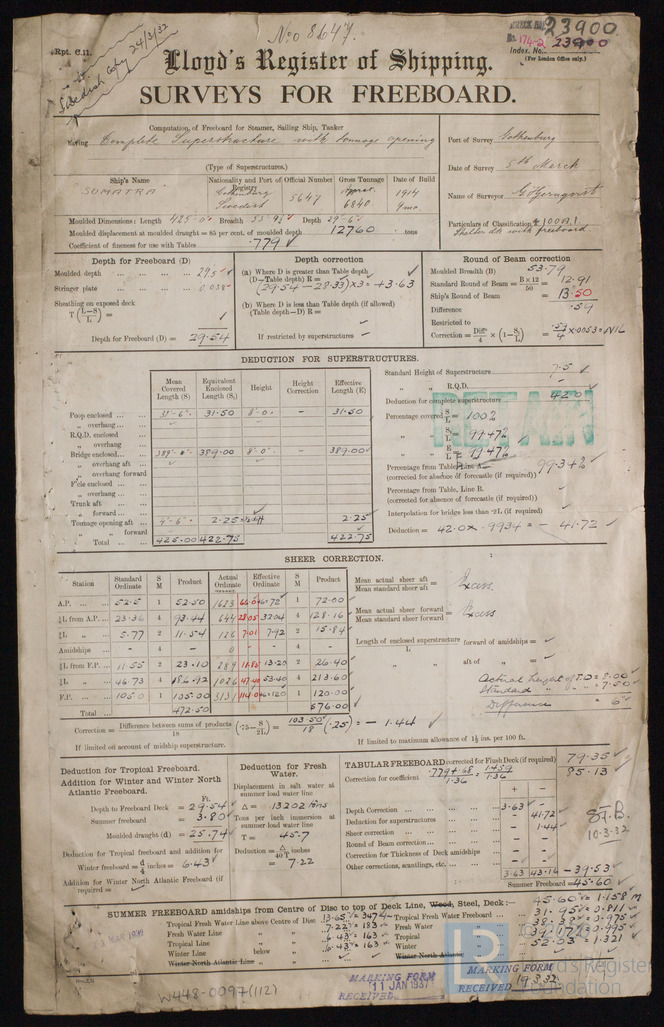 No 8647.
23900
174-2 23900
Index. No.
(For London Office only.)
Rpt. C.11.
Swedish Copy 24/3/32
Lloyd's Register of Shipping.
SURVEYS FOR FREEBOARD.
Computation of Freeboard for Steamer, Sailing Ship, Tanker
having Complete Superstructure with tonnage opening
(Type of Superstructures.)
Port of Survey Gothenburg
Date of Survey 5th March
Name of Surveyor
Particulars of Classification +100A1
Shelter dk with freeboard
Ship's Name Nationality and Port of Registry Official Number Gross Tonnage Date of Build
"SUMATRA" Gothenburg Swedish 5647 6840 1914
Moulded Dimensions: Length 425'-0" Breadth Depth 29'-6"
Moulded displacement at moulded draught = 85 per cent. of moulded depth 12760 tons
Coefficient of fineness for use with Tables .779
Depth for Freeboard (D)
Moulded depth 29.5
Stringer plate 0.038
Sheathing on exposed deck
T (L-S/L) =
Depth for Freeboard (D) = 29.54
Depth correction
(a) Where D is greater than Table depth
(D-Table depth) R =
(29.54 - 28.33) x 3 = +3.63
(b) Where D is less than Table depth (if allowed)
(Table depth-D) R =
If restricted by superstructures
Round of Beam correction
Moulded Breadth (B) 53.79
Standard Round of Beam = B x 12/50 = 12.91
Ship's Round of Beam = 13.50
Difference .59
Restricted to
Correction = Diff/4 x (1 - S/L) = .59/4 x .0053 = Nil
DEDUCTION FOR SUPERSTRUCTURES.
Mean Covered Length (S) Equivalent Enclosed Length (S₁) Height Height Correction Effective Length (E)
Poop enclosed 31'-6" 31.50 8'-0" - 31.50
" overhang
R.Q.D. enclosed
" overhang
Bridge enclosed 389'-0" 389.00 8'-0" - 389.00
" overhang aft
" overhang forward
F'cle enclosed
" overhang
Trunk aft
" forward
Tonnage opening aft 4'-6" 2.25 2.25
" " forward
Total 425.00 422.75 422.75
Standard Height of Superstructure 7.5
" " R.Q.D. -
Deduction for complete superstructure 42.0
Percentage covered S/L = 100%
" S₁/L = 99.47%
" E/L = 99.47%
Percentage from Table, Line A 99.34%
(corrected for absence of forecastle (if required))
Percentage from Table, Line B.
(corrected for absence of forecastle (if required))
Interpolation for bridge less than .2L (if required)
Deduction = 42.0 x .9934 = - 41.72
RETAIN
SHEER CORRECTION.
Station Standard Ordinate S M Product Actual Ordinate Effective Ordinate S M Product
A.P. 52.5 1 52.50 1623 72 1 72.00
⅙L from A.P. 23.36 4 93.44 644 28.05 32.04 4 128.16
⅓L " 5.77 2 11.54 126 7.01 7.92 2 15.84
Amidships - 4 - 0 - 4 -
⅓L from F.P. 11.55 2 23.10 289 11.85 13.20 2 26.40
⅙L " 46.73 4 186.92 1026 47.40 53.40 4 213.60
F.P. 105.0 1 105.00 3131 114.0 120 1 120.00
Total 472.50 576.00
Mean actual sheer aft
Mean standard sheer aft = Exces
Mean actual sheer forward
Mean standard sheer forward = Exces
Length of enclosed superstructure forward of amidships =
L
" " aft of " =
Actual height of T.O = 8.00
Standard " " = 7.50
Difference = 6"
Correction = Difference between sums of products/18 (.75 - S/2L) = 103.50/18 (.25) = - 1.44
If limited on account of midship superstructure.
If limited to maximum allowance of 1½ ins. per 100 ft.
Deduction for Tropical Freeboard.
Addition for Winter and Winter North Atlantic Freeboard.
Ft.
Depth to Freeboard Deck = 29.54
Summer freeboard = 3.80
Moulded draught (d) = 25.74
Deduction for Tropical freeboard and addition for
Winter freeboard = d/4 inches = 6.43
Addition for Winter North Atlantic Freeboard (if required) =
Deduction for Fresh Water.
Displacement in salt water at summer load water line
Δ = 13202 tons
Tons per inch immersion at summer load water line
T = 45.7
Deduction = Δ/40T inches
= 7.22
TABULAR FREEBOARD corrected for Flush Deck (if required) 79.35
Correction for coefficient .779+.68/1.36 = 1.459/1.36 85.13
+ -
Depth Correction 3.63
Deduction for superstructures 41.72
Sheer correction 1.44
Round of Beam correction
Correction for Thickness of Deck amidships
Other corrections, scantlings, etc.
3.63 43.16 - 39.53
Summer Freeboard = 45.60
10.3.32
SUMMER FREEBOARD amidships from Centre of Disc to top of Deck Line, Wood, Steel, Deck :— 45.60" = 1.158 m
Tropical Fresh Water Line above Centre of Disc 13.65" = 347 Tropical Fresh Water Freeboard 31.95" = 0.811
Fresh Water Line " " 7.22" = 183 Fresh Water 38.38" = 0.975
Tropical Line " " 6.43" = 163 Tropical 39.17" = 0.995
Winter Line below " 6.43" = 163 Winter 52.03" = 1.321
Winter North Atlantic Line " Winter North Atlantic
MAR 1931
MARKING FORM
11 JAN 1937
RECEIVED
MARKING FORM
RECEIVED 19.3.32
W448-0097(112)
Lloyd's Register
Foundation